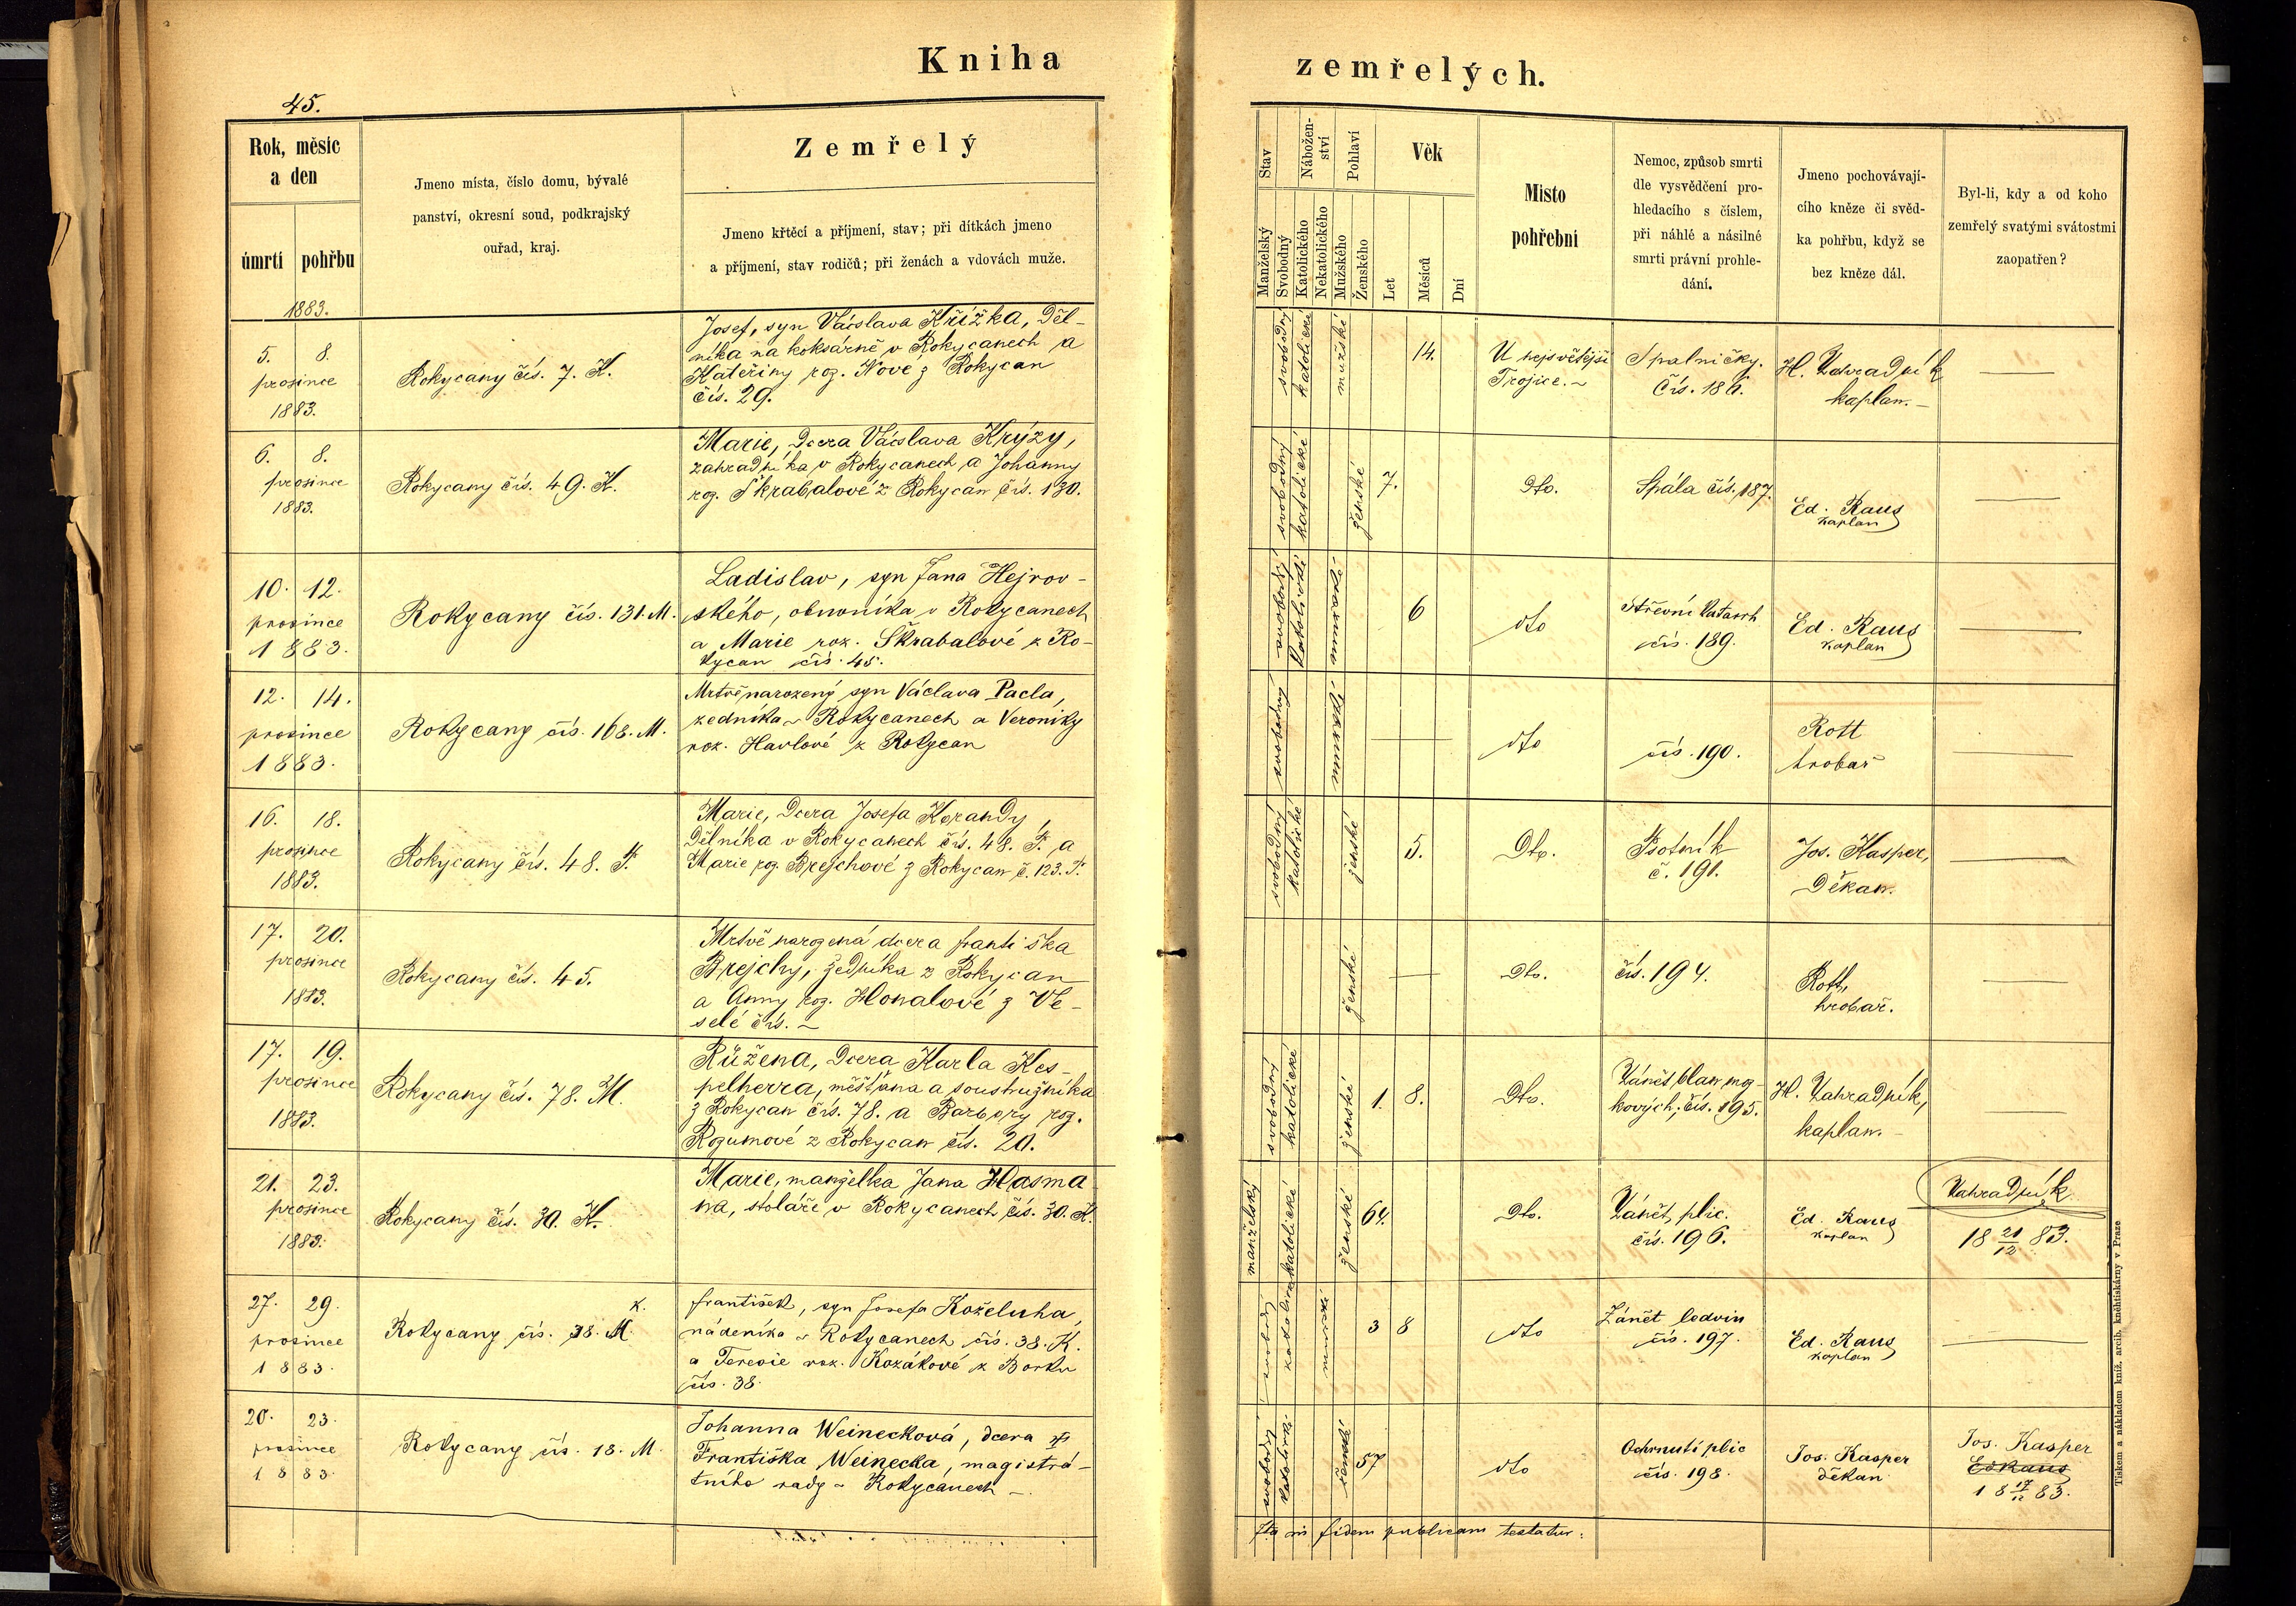 Kniha
zemřelých.
45.
Rok, měsíc
a den
úmrtí pohřbu
Jmeno místa, číslo domu, bývalé
panství, okresní soud, podkrajský
ouřad, kraj.
Zemřelý
Jmeno křtěcí a příjmení, stav; při dítkách jmeno
a příjmení, stav rodičů; při ženách a vdovách muže.
Stav
Manželský
Svobodný
Nábožen-
ství
Katolického
Nekatolického
Pohlaví
Mužského
Ženského
Věk
Let
Měsíců
Dní
Místo
pohřební
Nemoc, způsob smrti
dle vysvědčení pro-
hledacího s číslem,
při náhlé a násilné
smrti právní prohle-
dání.
Jmeno pochovávají-
cího kněze či svěd-
ka pohřbu, když se
bez kněze dál.
Byl-li, kdy a od koho
zemřelý svatými svátostmi
zaopatřen?
1883.
5. 8.
prosince
1883.
Rokycany čís. 7. K.
Josef, syn Václava Křížka, děl-
níka na koksárně v Rokycanech a
Kateřiny roz. Nové z Rokycan
čís. 29.
svobodný
katolické
mužské
14.
U nejsvětější
Trojice.
Spalničky.
Čís. 186.
H. Zahradník
kaplan.
6. 8.
prosince
1883.
Rokycany čís. 49. K.
Marie, dcera Václava Krýzy,
zahradníka v Rokycanech a Johanny
roz. Škrabalové z Rokycan čís. 130.
svobodný
katolické
ženské
7.
Dto.
Spála čís. 187.
Ed. Raus
kaplan
10. 12.
prosince
1883.
Rokycany čís. 131. M.
Ladislav, syn Jana Hejrov-
ského, obuvníka v Rokycanech
a Marie roz. Škrabalové z Ro-
kycan čís. 45.
svobodný
katolické
mužské
6
dto
Střevní Katarrh
čís. 189.
Ed. Raus
kaplan
12. 14.
prosince
1883.
Rokycany čís. 168. M.
Mrtvěnarozený syn Václava Pacla,
zedníka v Rokycanech a Veroniky
roz. Havlové z Rokycan
svobodný
mužské
dto
čís. 190.
Rott
hrobař
16. 18.
prosince
1883.
Rokycany čís. 48. P.
Marie, dcera Josefa Korandy,
dělníka v Rokycanech čís. 48. P. a
Marie roz. Brejchové z Rokycan č. 123. P.
svobodný
katolické
ženské
5.
Dto.
Psotník
č. 191.
Jos. Kasper,
Děkan.
17. 20.
prosince
1883.
Rokycany čís. 45.
Mrtvě narozená dcera Františka
Brejchy, zedníka z Rokycan
a Anny roz. Honalové z Ve-
selé čís.
ženské
Dto.
čís. 194.
Rott,
hrobař.
17. 19.
prosince
1883.
Rokycany čís. 78. M.
Růžena, dcera Karla Kes-
pelherra, měšťana a soustružníka
z Rokycan čís. 78. a Barbory roz.
Rozumové z Rokycan čís. 20.
svobodný
katolické
ženské
1. 8.
Dto.
Zánět blan moz-
kových, čís. 195.
H. Zahradník,
kaplan.
21. 23.
prosince
1883.
Rokycany čís. 30. K.
Marie, manželka Jana Hasma
na, stoláře v Rokycanech čís. 30. K.
manželský
katolické
ženské
64.
Dto.
Zánět plic.
čís. 196.
Ed. Raus
kaplan
Zahradník
18 21/12 83.
27. 29.
prosince
1883.
K.
Rokycany čís. 38. M.
František, syn Josefa Koželuha,
nádeníka v Rokycanech čís. 38. K.
a Terezie roz. Kozákové z Borku
čís. 38.
svobodný
katolické
mužské
3 8
dto
Zánět ledvin
čís. 197.
Ed. Raus
kaplan
20. 23.
prosince
1883.
Rokycany čís. 18. M.
Johanna Weinecková, dcera
Františka Weinecka, magistrá-
tního rady v Rokycanech
svobodný
katolické
ženské
57
dto
Ochrnutí plic
čís. 198.
Jos. Kasper
děkan
Jos. Kasper
Ed Raus
18 17/12 83.
Ita in fidem publicam testatur:
Tiskem a nákladem kníž. arcib. kněhtiskárny v Praze